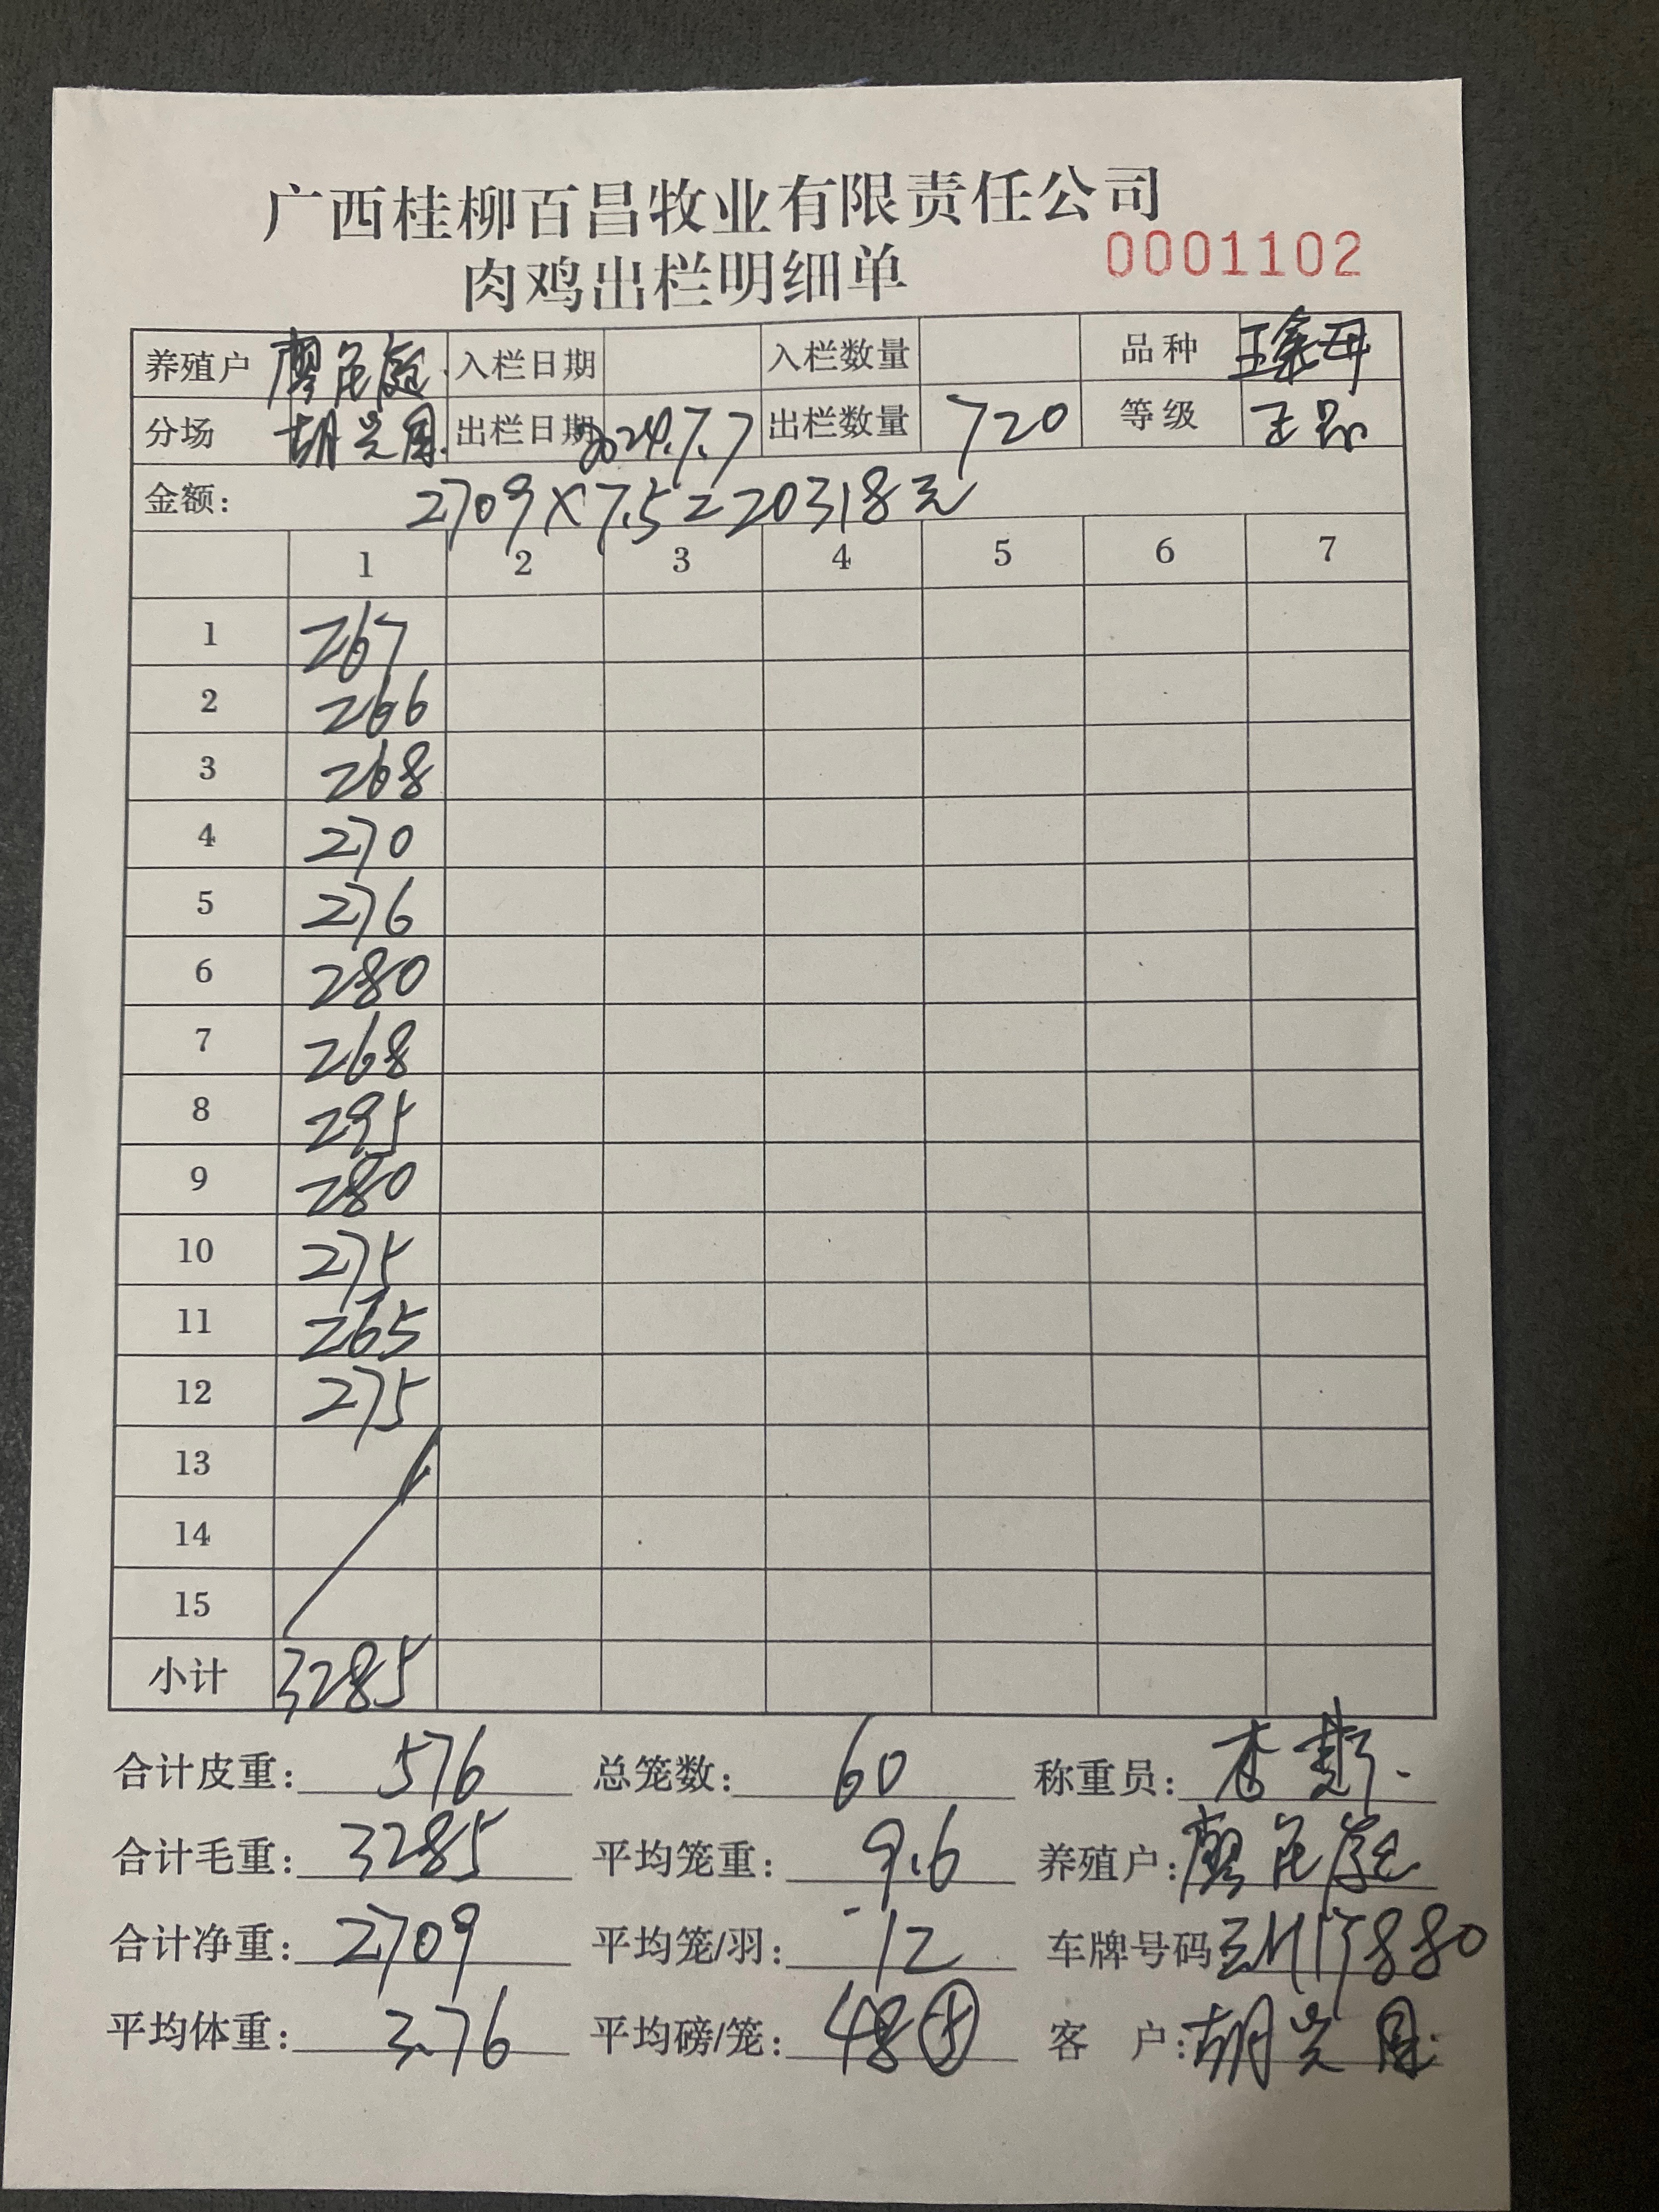 广西桂柳百昌牧业有限责任公司
肉鸡出栏明细单
0001102
养殖户 廖 入栏日期 入栏数量 品种
分场 胡兴周 出栏日期 2024.7.7 出栏数量 720 等级 正品
金额: 2709×7.5=20318元
1 2 3 4 5 6 7
1 267
2 266
3 268
4 270
5 276
6 280
7 268
8 295
9 280
10 275
11 265
12 275
13
14
15
小计 3285
合计皮重: 576 总笼数: 60 称重员:
合计毛重: 3285 平均笼重: 9.6 养殖户: 廖
合计净重: 2709 平均笼/羽: 12 车牌号码
平均体重: 3.76 平均磅/笼: 48 客 户: 胡兴周